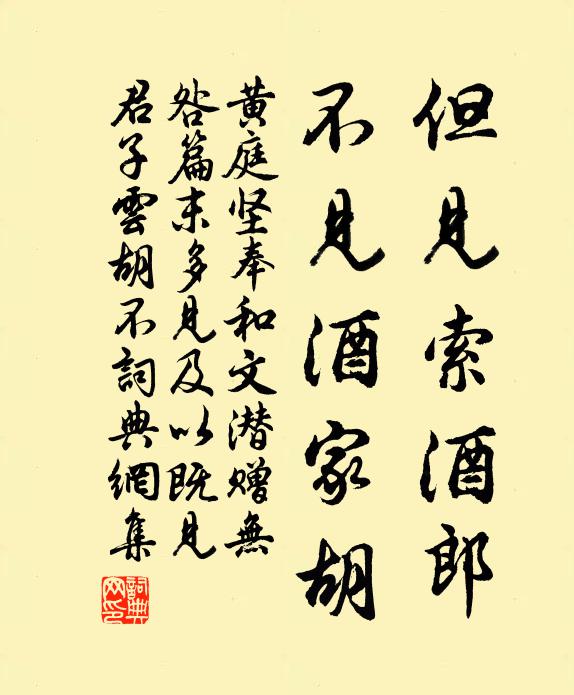 但見索酒郎
不見酒家胡
黄庭坚奉和文潜赠無
咎篇末多見及以既見
君子雲胡不詞典網集
詞典網印